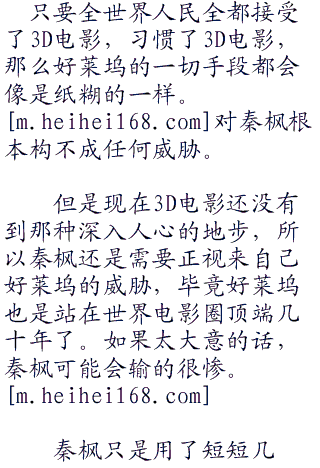 只要全世界人民全都接受
了3D电影，习惯了3D电影，
那么好莱坞的一切手段都会
像是纸糊的一样。
[m.heihei168.com]对秦枫根
本构不成任何威胁。
但是现在3D电影还没有
到那种深入人心的地步，所
以秦枫还是需要正视来自己
好莱坞的威胁，毕竟好莱坞
也是站在世界电影圈顶端几
十年了。如果太大意的话，
秦枫可能会输的很惨。
[m.heihei168.com]
秦枫只是用了短短几